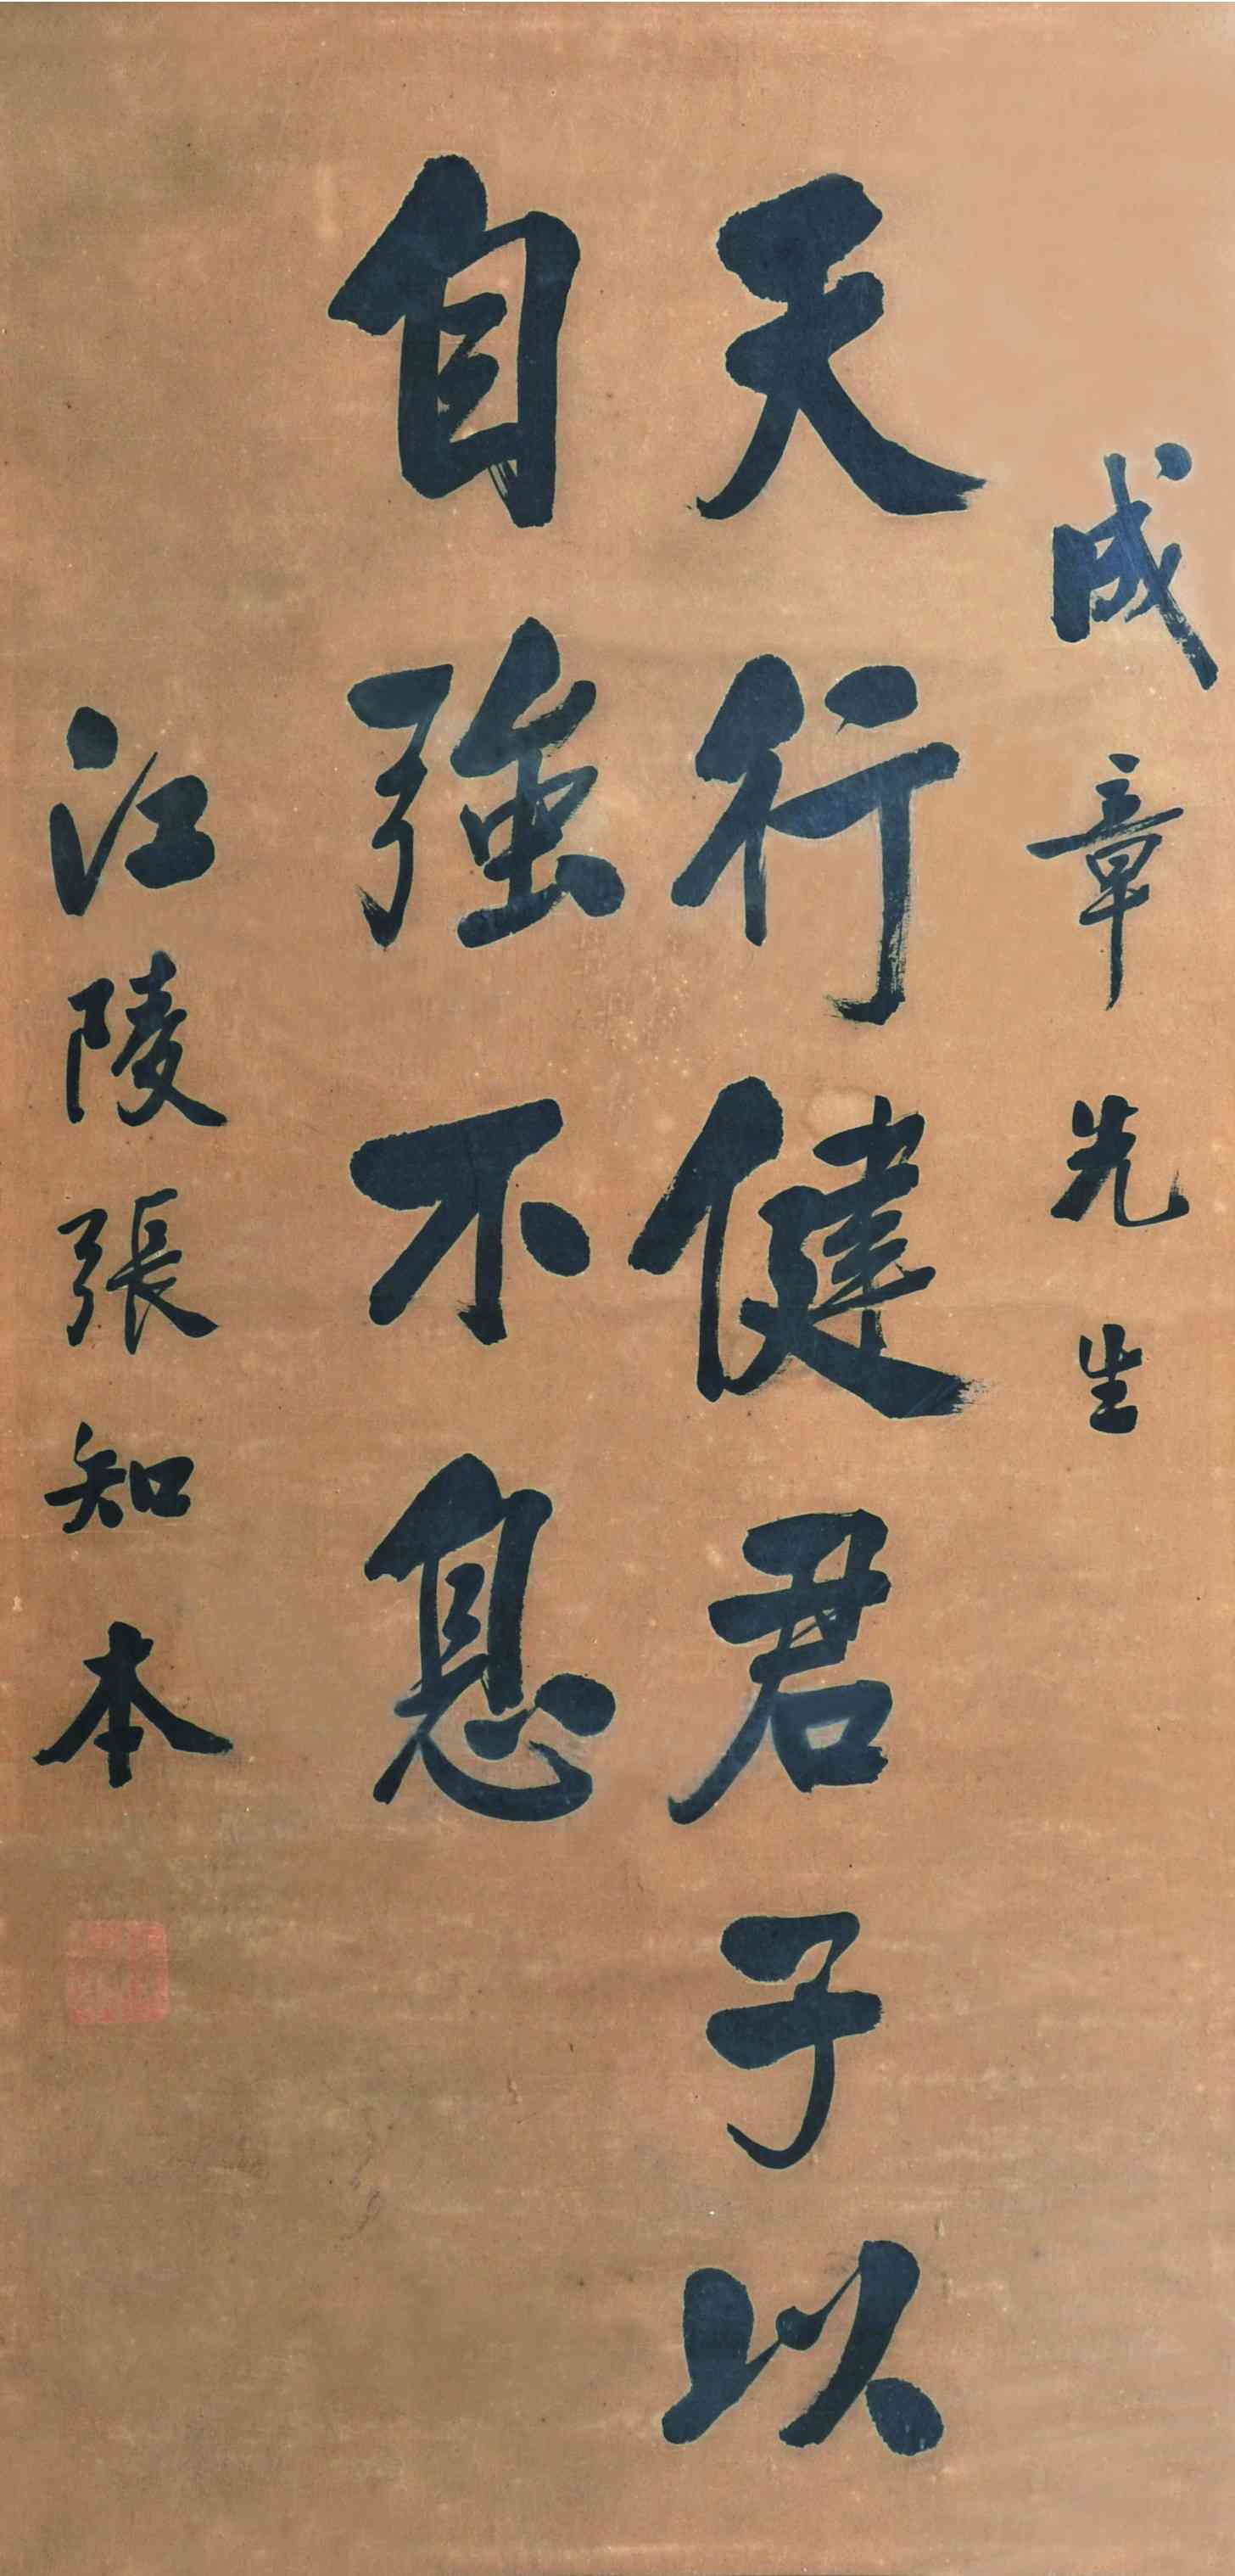 成章先生
天行健君子以
自強不息
江陵張知本